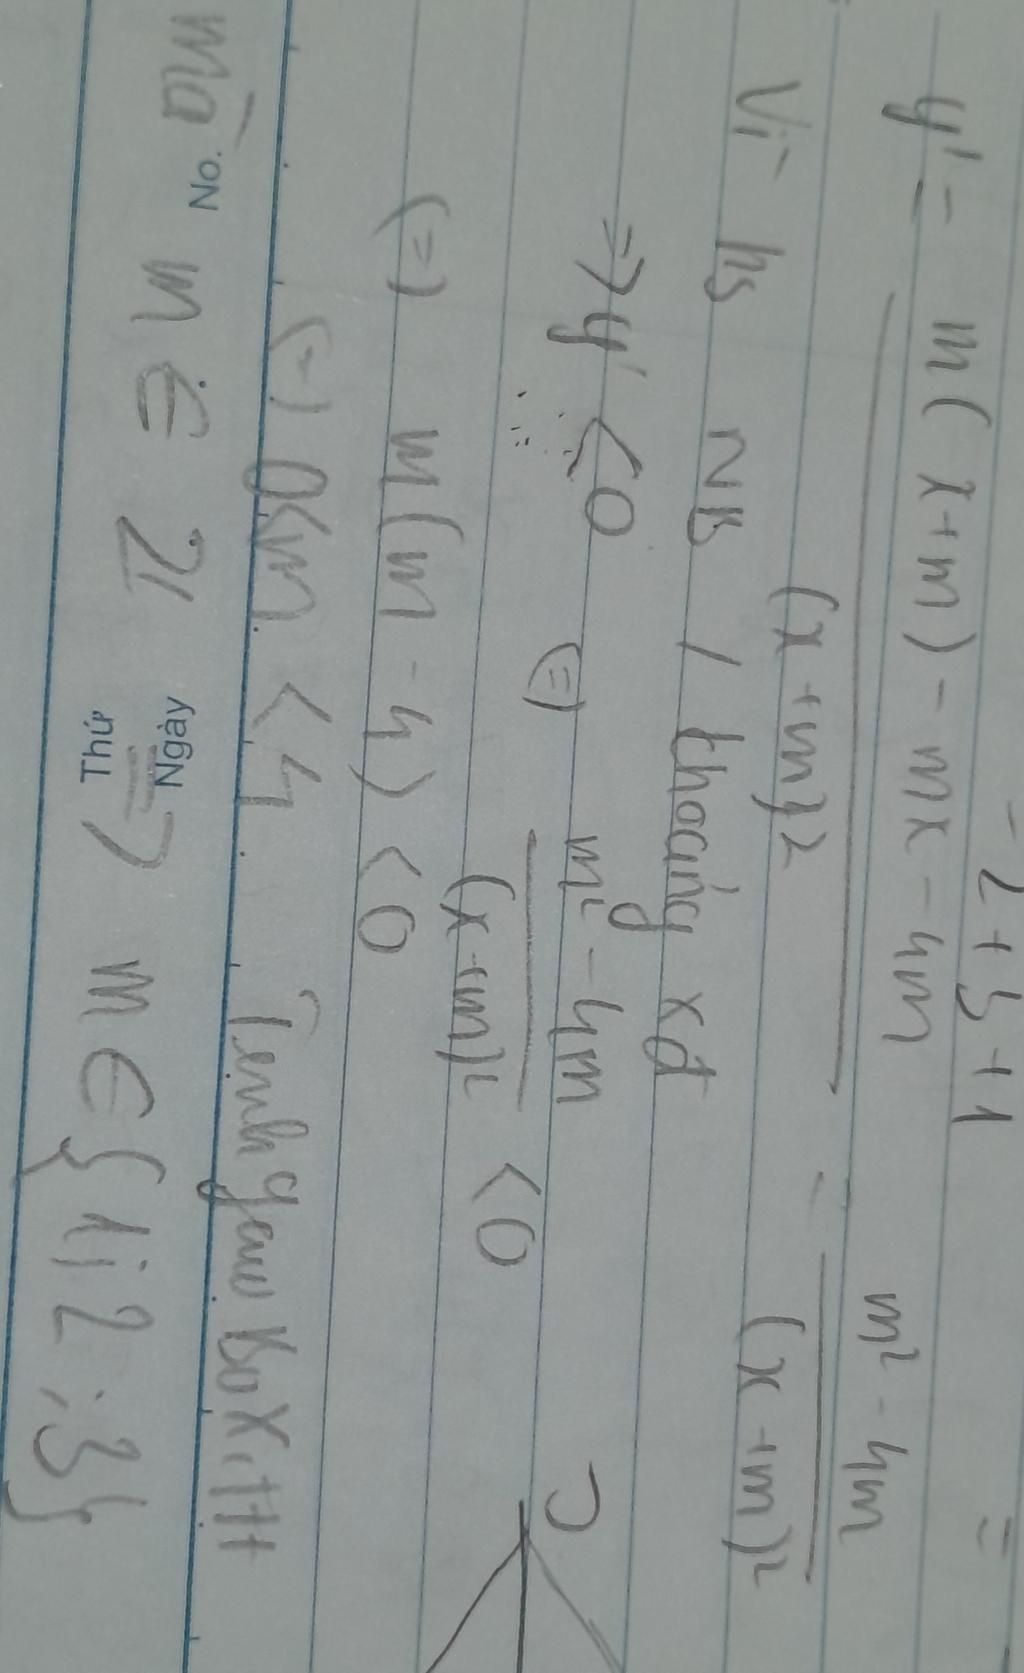 - 2 + 3 + 1 =
y' = m(x+m) - mx - 4m / (x+m)² = m² - 4m / (x+m)²
Vì hs NB / khoảng xđ
=> y' < 0 (=) m² - 4m / (x+m)² < 0
(=) m(m - 4) < 0
(=) 0<m < 4.
Mà m ∈ Z => m ∈ {1; 2; 3}
No.
Thứ
Ngày